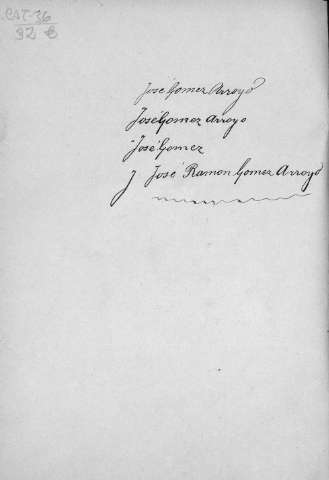 CAT-36
92 €
José Gomez Arroyo
José Gomez Arroyo
José Gomez
J José Ramon Gomez Arroyo